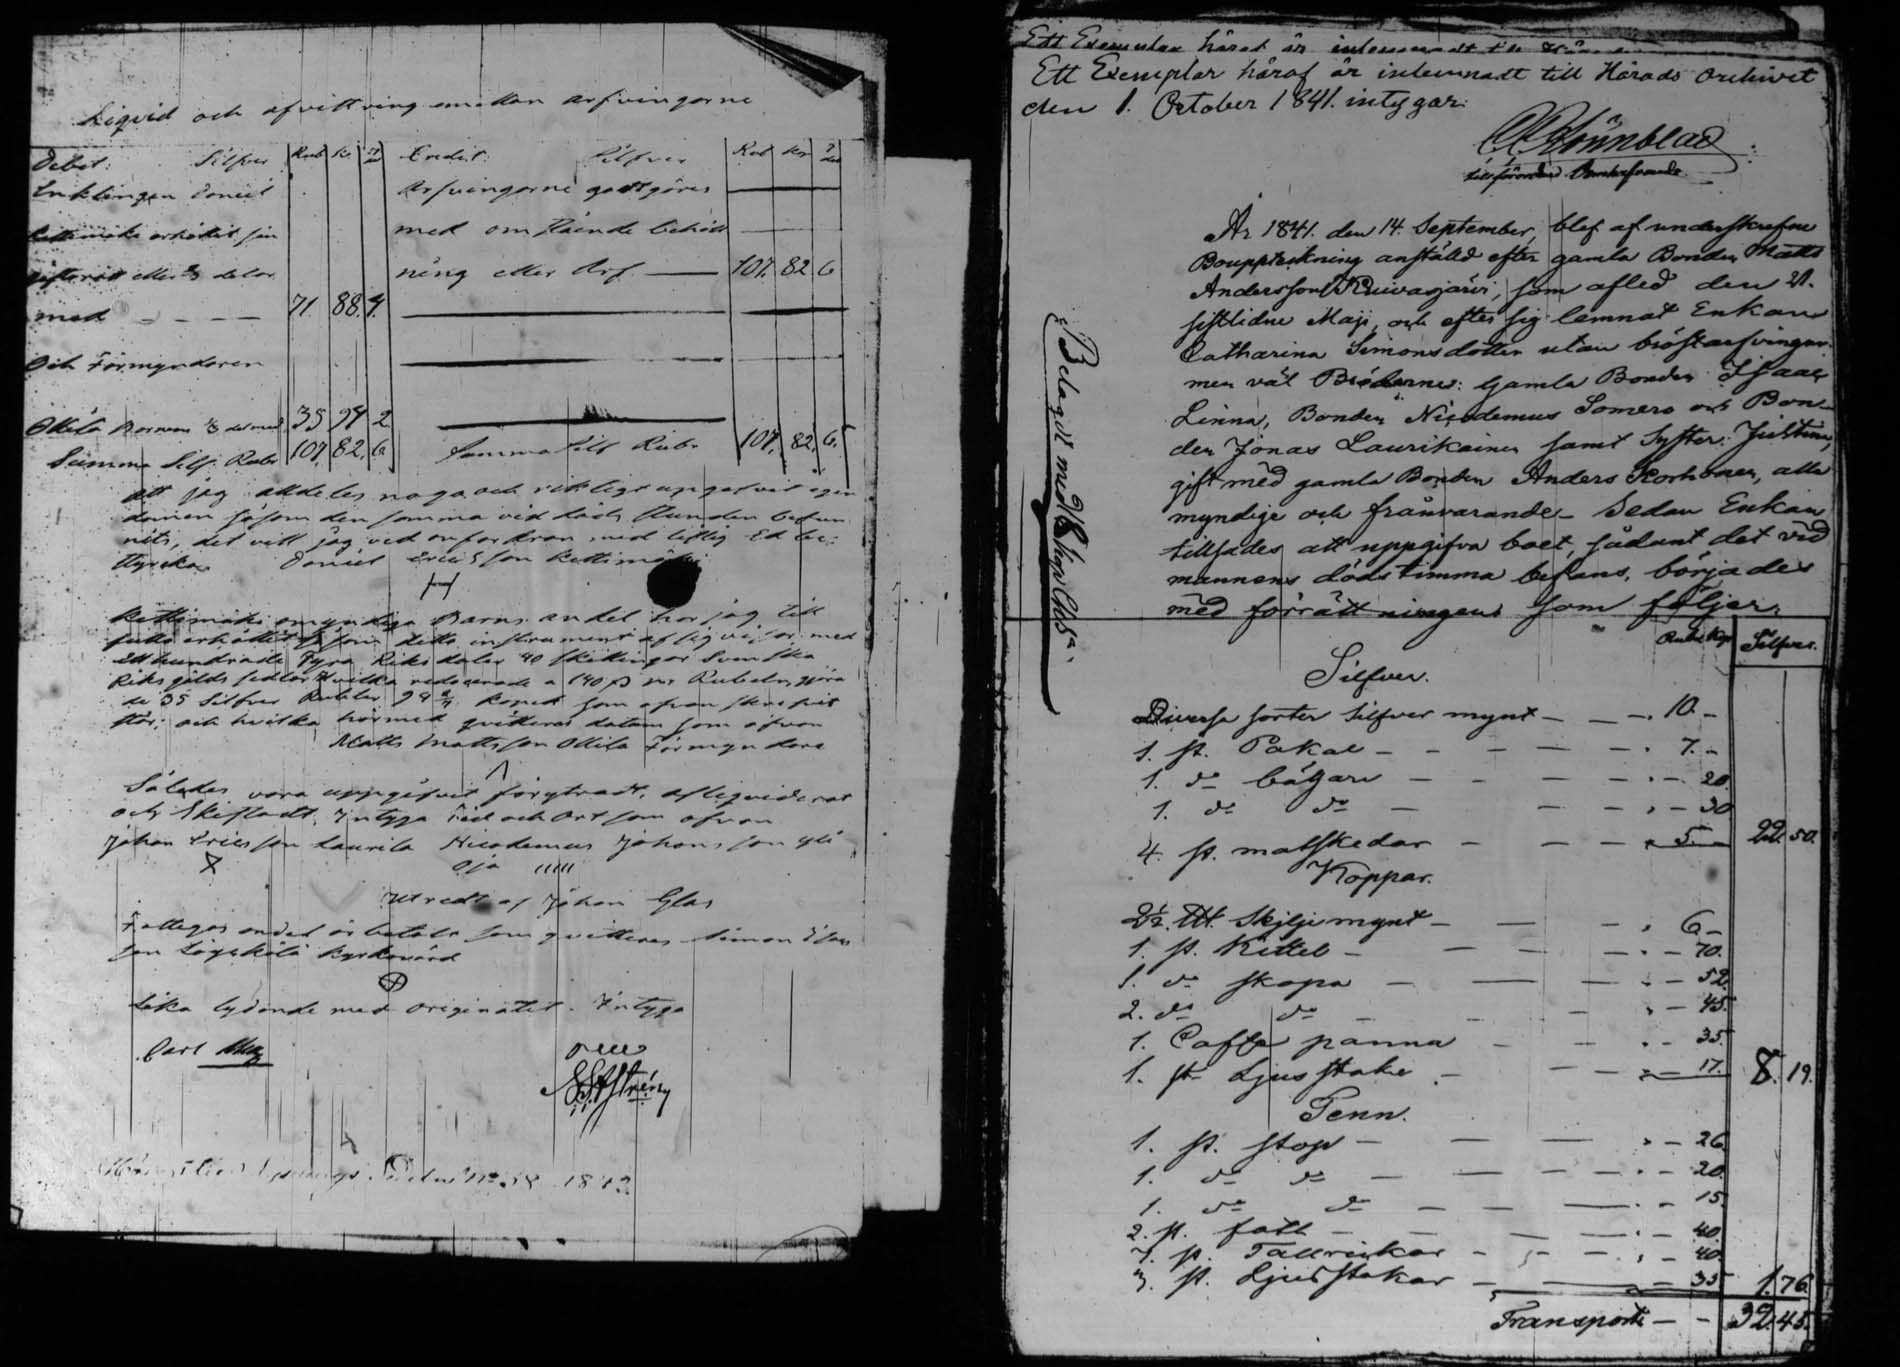 Liqvid och afvittring emellan arfvingarne
Debet. Silfver Rub. k. Credit. Silfver Rub. kr.
Enklingen Daniel Arfvingarne godtgöres
Kettimäki erhållit sin med omstående behåll
giftorätt eller 2/3 delar ning eller Arf. — 107. 82 6
med — — — — 71 88. 4
Och Förmyndaren
Ottila Barnens 1/3 del med 35 94 2
Summa Silf. Rubr 107, 82, 6 Summa Silf Rubr 107, 82, 6.
att jag alldeles noga och riktigt uppgifvit egen
domen såsom den samma vid döds stunden befun
nits, det vill jag vid anfordran med liflig Ed be-
styrka Daniel Ericsson Kettimäki
Kettimäki omyndiga Barns andel har jag till
fullo erhållit som detta instrument af sig visar med
Etthundrade Fyra Riksdaler 40 skillingar Svenska
Riksgälds sedlar hvilka reducerade a 140 per Rubeln, göra
de 35 Silfver Rubler 94 kopek som ofvan skrifvit
står; och hvilka härmed qvitteras datum som ofvan
Matts Mattsson Ottila Förmyndare
Således vara uppgifvit förytradt, afliqviderat
och Skiftadt, Intyga Tid och Ort som ofvan
Johan Ericsson Laurila Nicodemus Johansson yli
X oja
Utredt af Johan Glas
Fattigas andel är betalt som qvitteras Simon
son kyrkovärd
Lika lydande med Originalet. Intyga
Carl
Ett Exemplar häraf är inlemnadt till
Ett Exemplar häraf är inlemnadt till Härads Archivet
den 1. October 1841. intygar:
Lönnblad
tillförordnad
År 1841. den 14. September, blef af underskrefne
Bouppteckning anställd efter gamla Bonden Matts
Andersson Ruivasjärvi, som afled den 21.
sistlidne Maji, och efter sig lemnat Enkan
Catharina Simonsdotter utan bröstarfvingar
men väl Bröderne: gamla Bonden Isaac
Linna, Bonden Nicodemus Somero och Bon-
den Jonas Laurikainen samt Syster: Justina,
gift med gamla Bonden Anders Korhonen, alla
myndige och frånvarande - Sedan Enkan
tillsades att uppgifva boet, sådant det vid
mannens dödstimma befans, börjades
med förrättningen som följer:
Belagdt med
Rubl Kop Silfver.
Silfver.
Diversa sorter silfver mynt — — 10. -
1. st. Pokal — — — — — 7. -
1. do bägare — — — — — 20.
1. do do — — — — 30
4. st. matskedar — — — 5. — 22. 50.
Koppar.
2½. ℔. Skiljemynt — — — 6 -
1. st. Kittel — — — — 70.
1. do skopa — — — — 52.
2. do do — — — — 45.
1. Caffe panna — — — 35.
1. st. Ljusstake — — — 17. 8. 19.
Tenn.
1. st. stop — — — — 26.
1. do do — — — — 20.
1. do do — — — — 15.
2. st. fatt — — — — 40.
7. st. Tallrickar — — — 40.
3. st. Ljusstakar — — 35 1. 76.
Transport — — 32. 45.